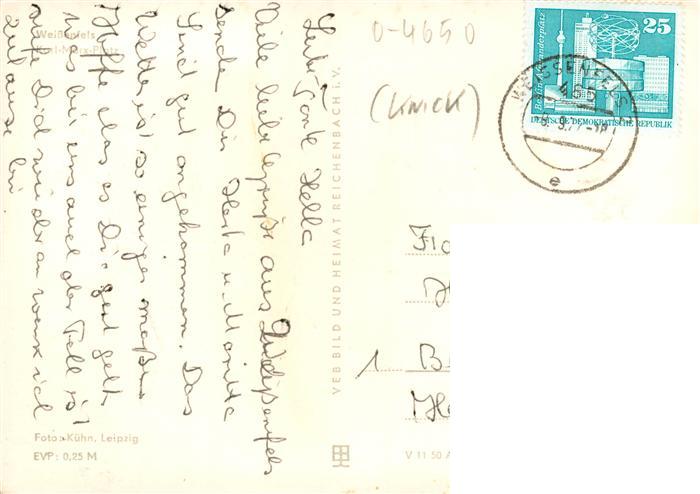 Weißenfels
Karl-Marx-Platz
Liebe Tante Hella
Viele liebe Grüße aus Weißenfels
sende Dir Herta u. Maritta
Sind gut angekommen. Das
Wetter ist so einiger maßen
Hoffe das es Dir gut geht
was bei uns auch der Fall ist
rufe Dich wieder an wenn ich
zu hause bin
Foto: Kühn, Leipzig
EVP: 0,25 M
VEB BILD UND HEIMAT REICHENBACH i. V.
V 11 50 A
0-4650
(KNICK)
Berlin, Alexanderplatz
25
DEUTSCHE DEMOKRATISCHE REPUBLIK
WEISSENFELS
485
e
1 B
He